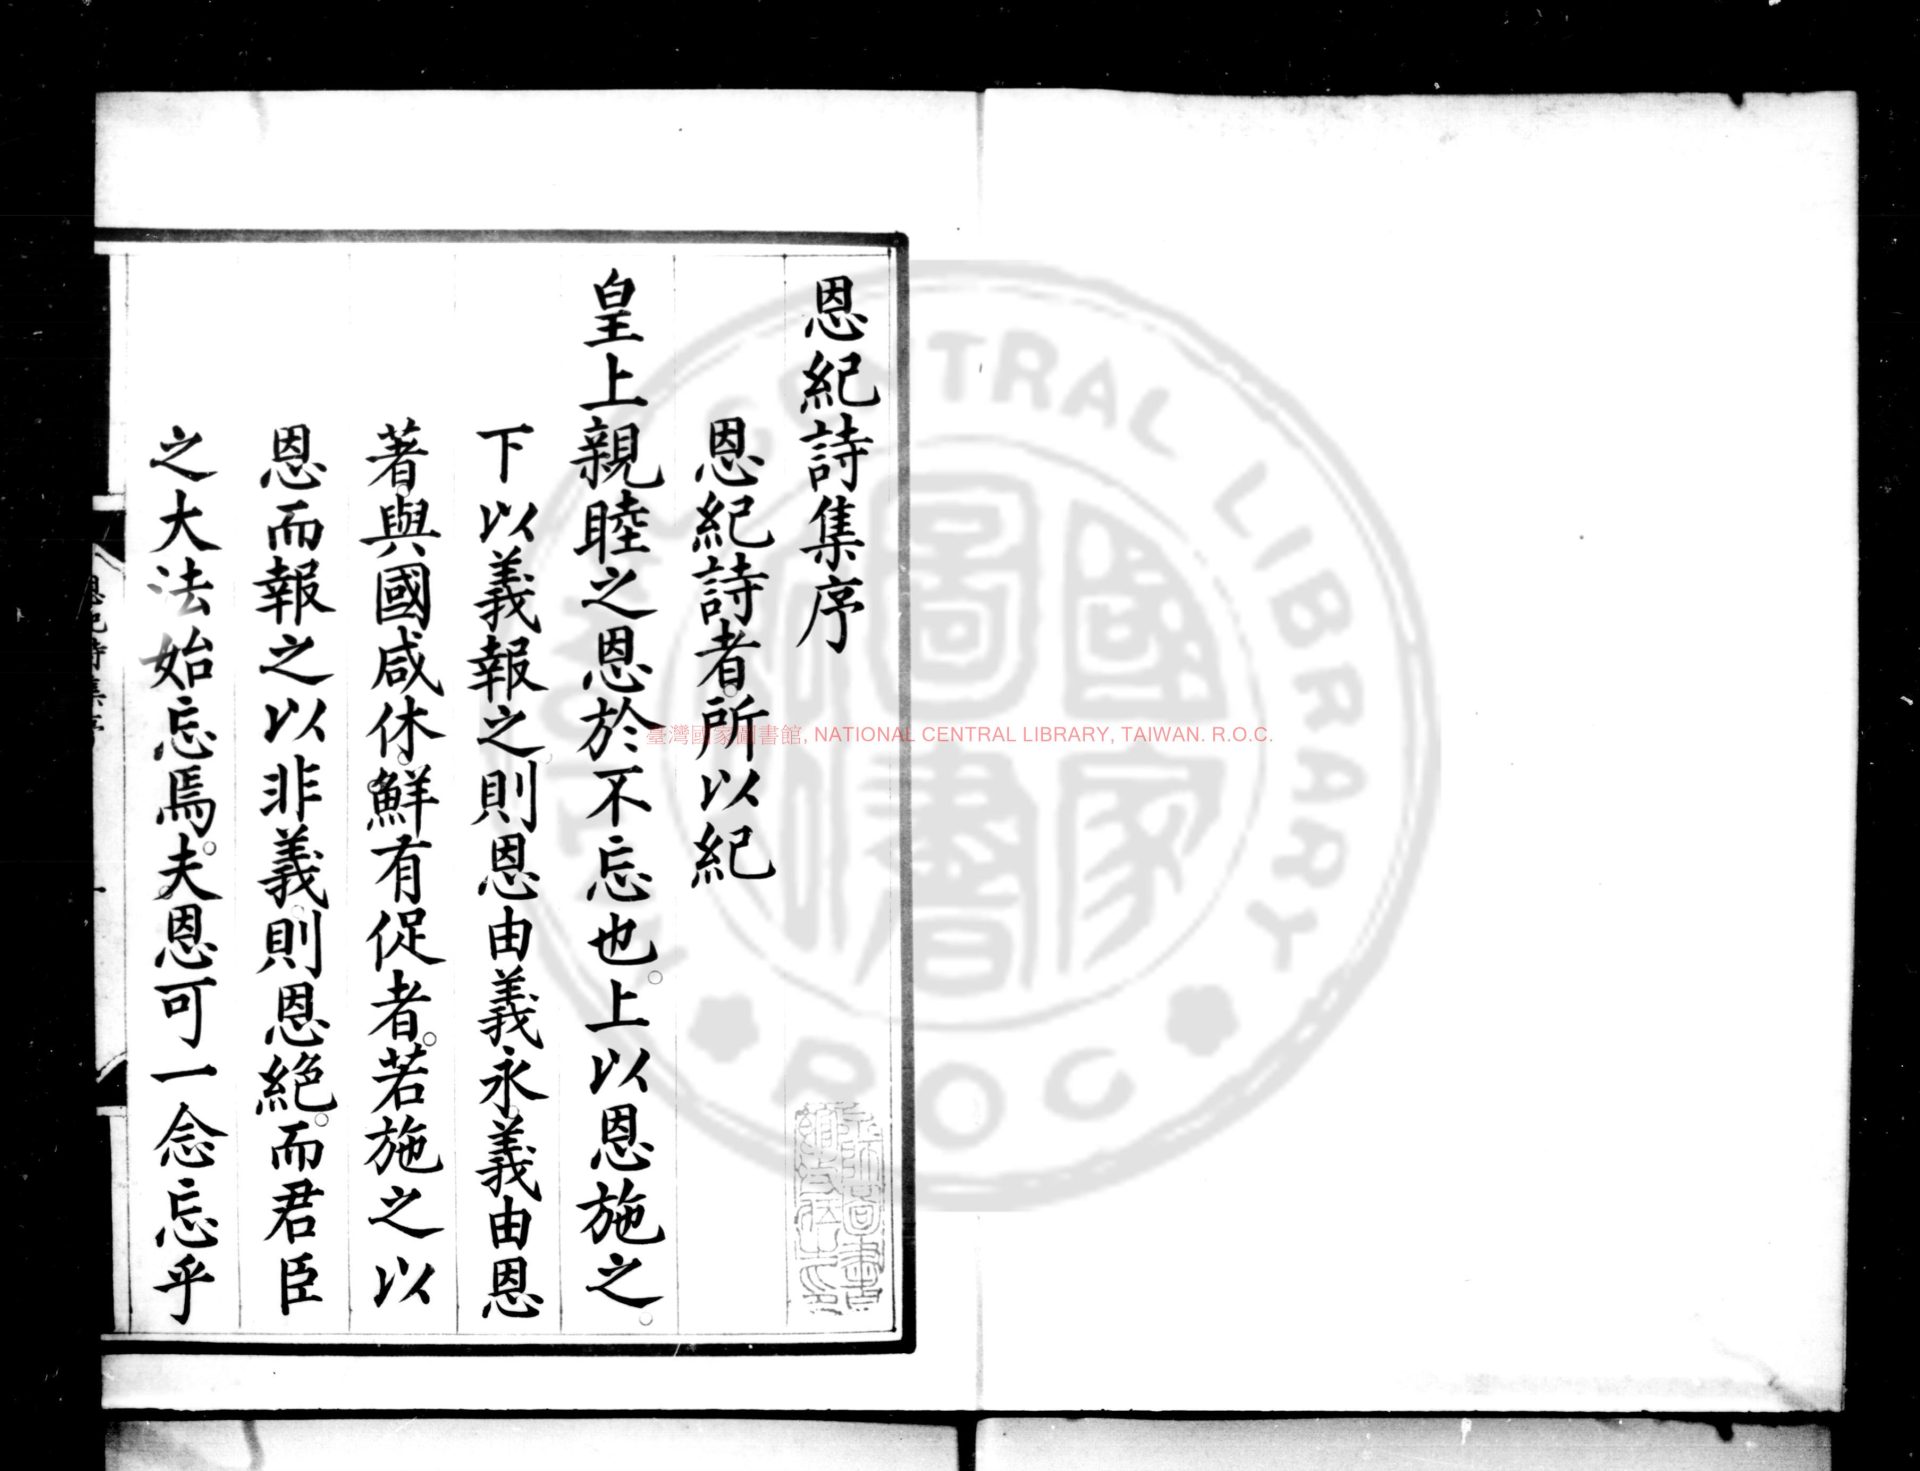 恩紀詩集序
恩紀詩者所以紀
皇上親睦之恩於不忘也上以恩施之
下以義報之則恩由義永義由恩
著與國咸休鮮有促者若施之以
恩而報之以非義則恩絕而君臣
之大法始忘焉夫恩可一念忘乎
恩紀詩集序
一
臺灣國家圖書館, NATIONAL CENTRAL LIBRARY, TAIWAN. R.O.C.
NATIONAL CENTRAL LIBRARY
ROC
國家
圖書